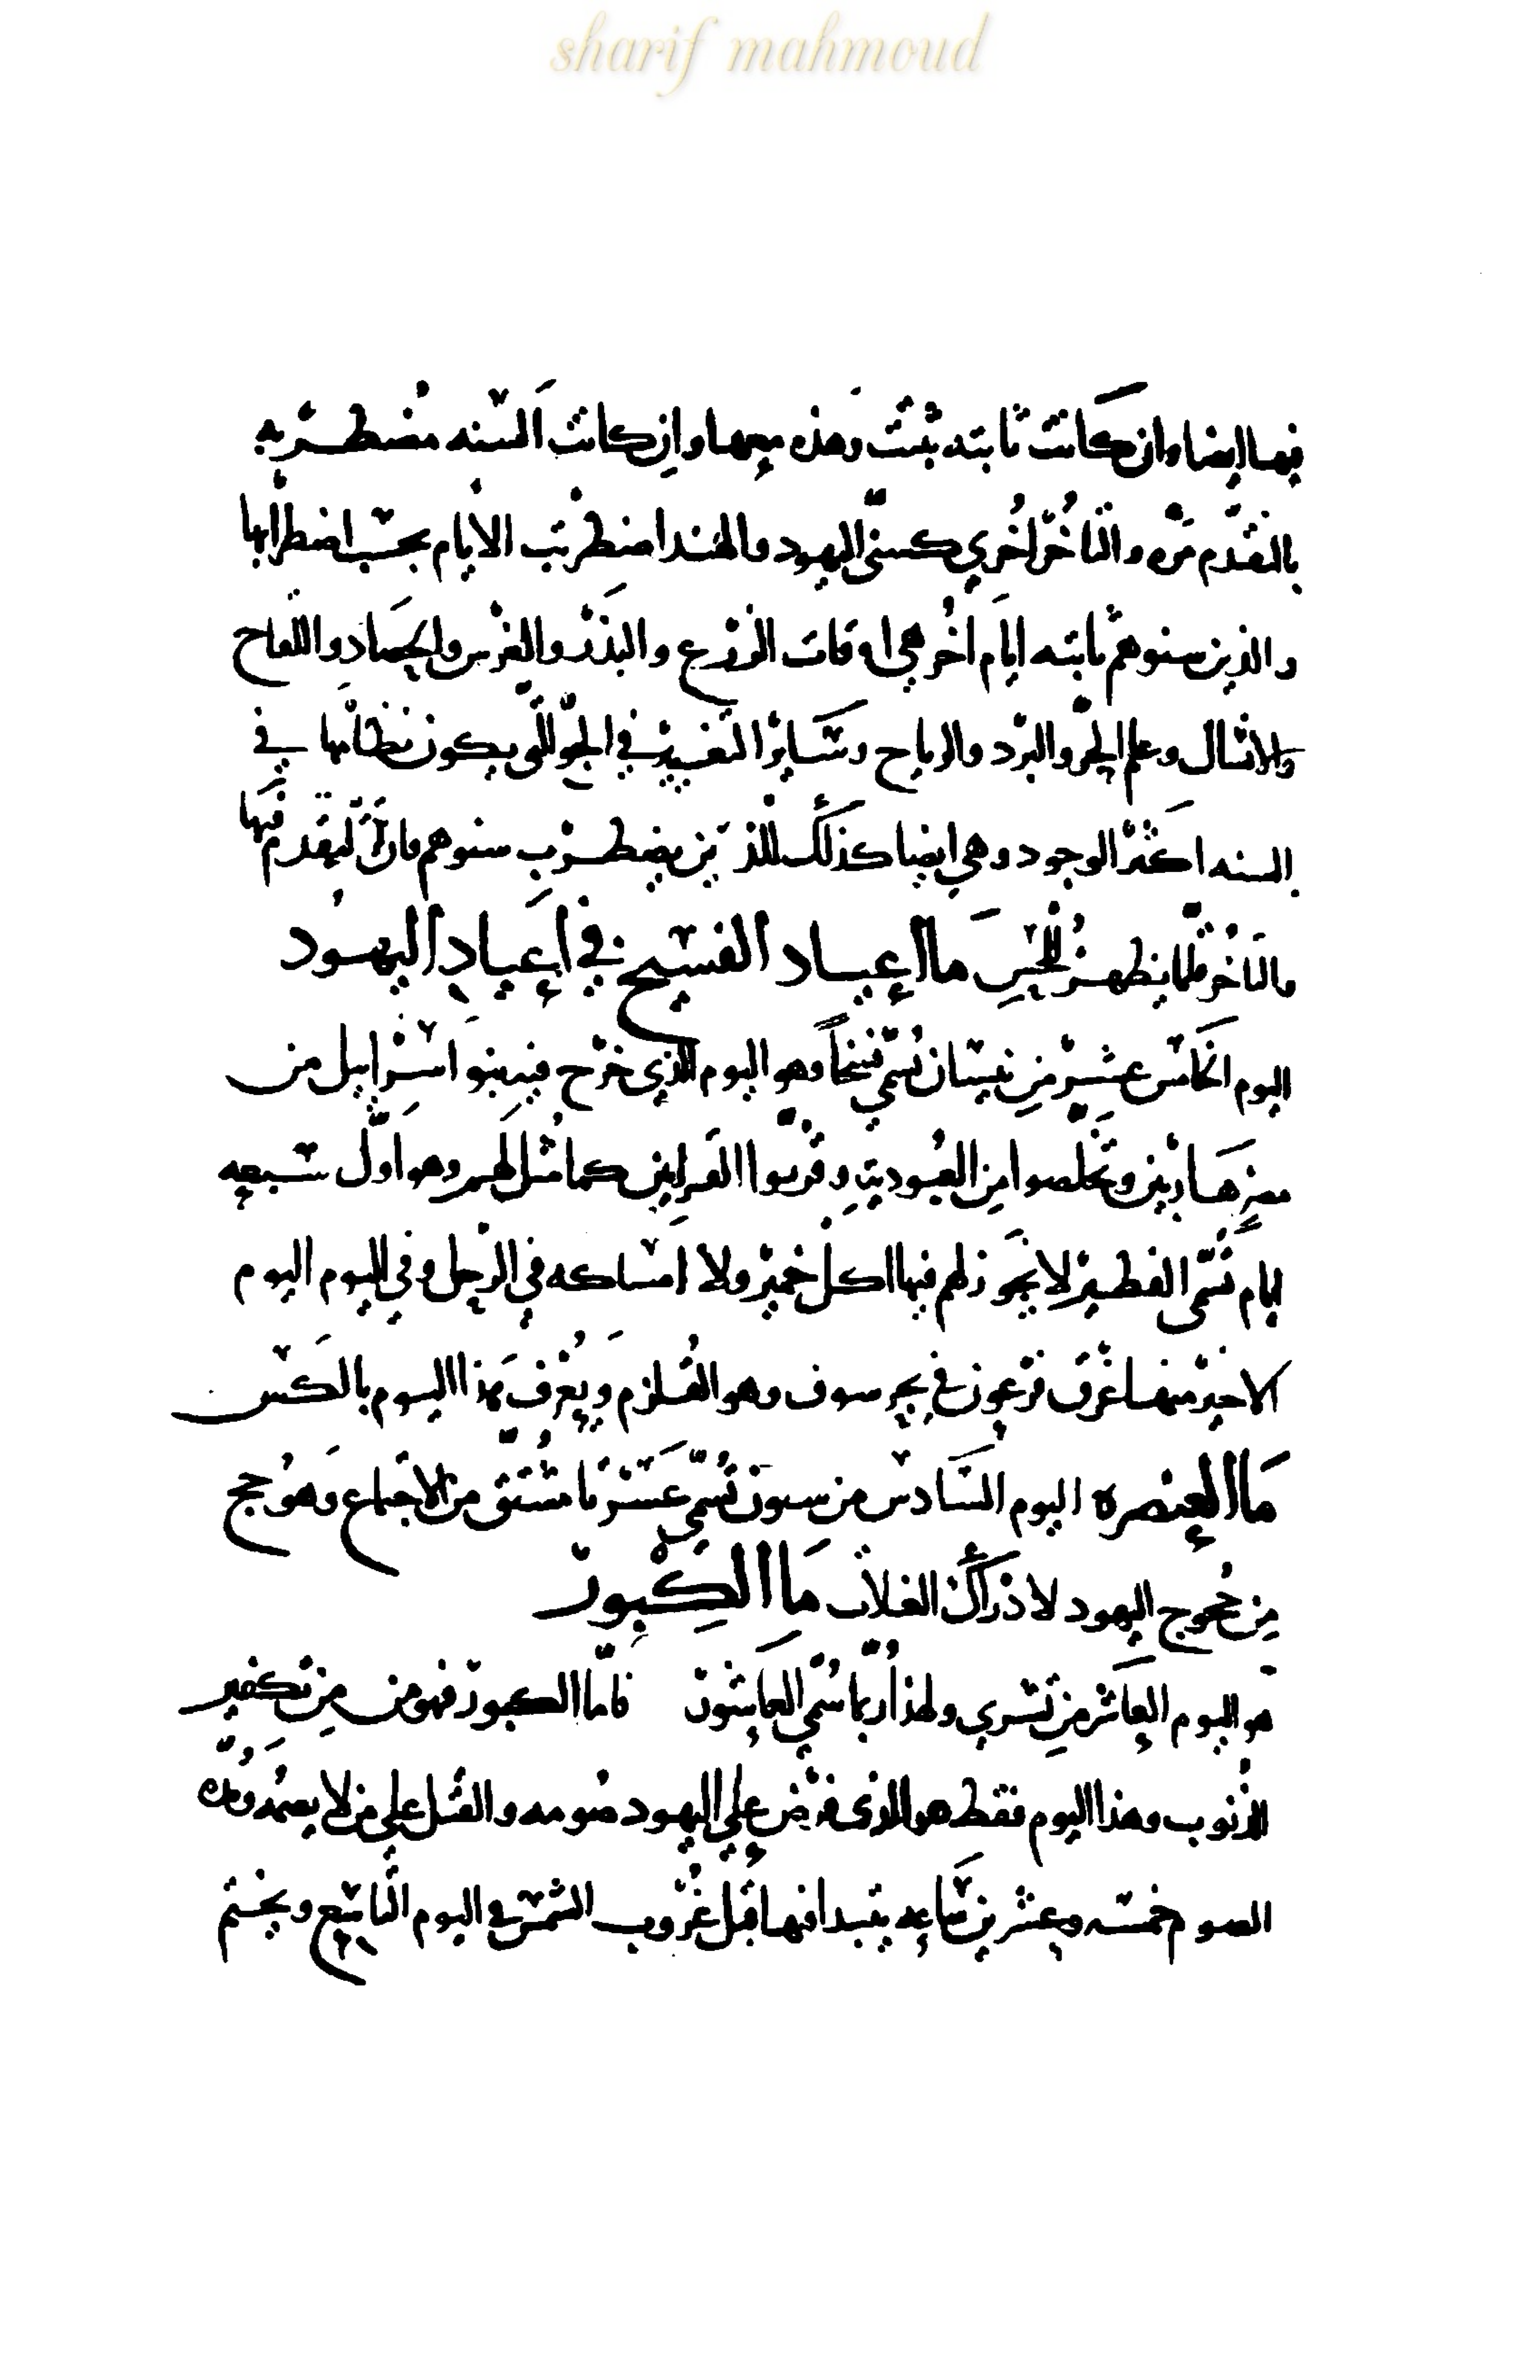 sharif mahmoud
فيها ايضا وان كانت ثابته ثبتت وهذه معها وان كانت السنه مضطربه
بالتقدّم مرّه والتاخّر اخُري كسنىّ اليهود والهند اضطربت الايام بحسب اضطرابها
والذين سنوهم ثابته ايام اخُر هي اوقات الزرع والبذر والغرس والحصاد واللقاح
والانتال وعلم الحرّ والبرد والرياح وسَاير التغييرُ في الجوّ اللتى يكون نظامها في
السنه اكثر الوجود وهي ايضا كذلك للذين يضطرب سنوهم فان التقدم فيها
والتاخر قلما يظهر للحِسِ ما اعياد الفسح في اعياد اليهود
اليوم الخامس عشر من نيسان تُسمّي فسحاً وهو اليوم الذي خرج فيه بنو اسرايل من
مصر هاربين وتخلّصوا من العُبودية وقرّبوا القرابين كما مُثل لهم وهو اوّل سبعه
ايام تُسمّى الفطير لا يجوز لهم فيها اكل خمير ولا امساكه في الرحل وفي اليوم اليوم
الاخير منها غرق فرعون في بحر سوف وهو القُلزم ويُعرف هذا اليوم بالكس
مَا العنصره اليوم السّادس من سيون تُسمّي عَشَرتا مشُتق من الاجتماع وهو حج
من حُجوج اليهود لادراك الغلات مَا الكِبور
هو اليوم العاشر من تشري ولهذا رُبّما سُمّي العاشور فامّا الكبور فهو من من تكفير
الذُنوب وهذا اليوم فقط هو الذى فرض على اليهود صُومه والقتل على من لا يصمه ومُدّه
الصوم خمسه وعشرين ساعه يبتدا فيها قبل غُروب الشمس في اليوم التاسِع ويختم